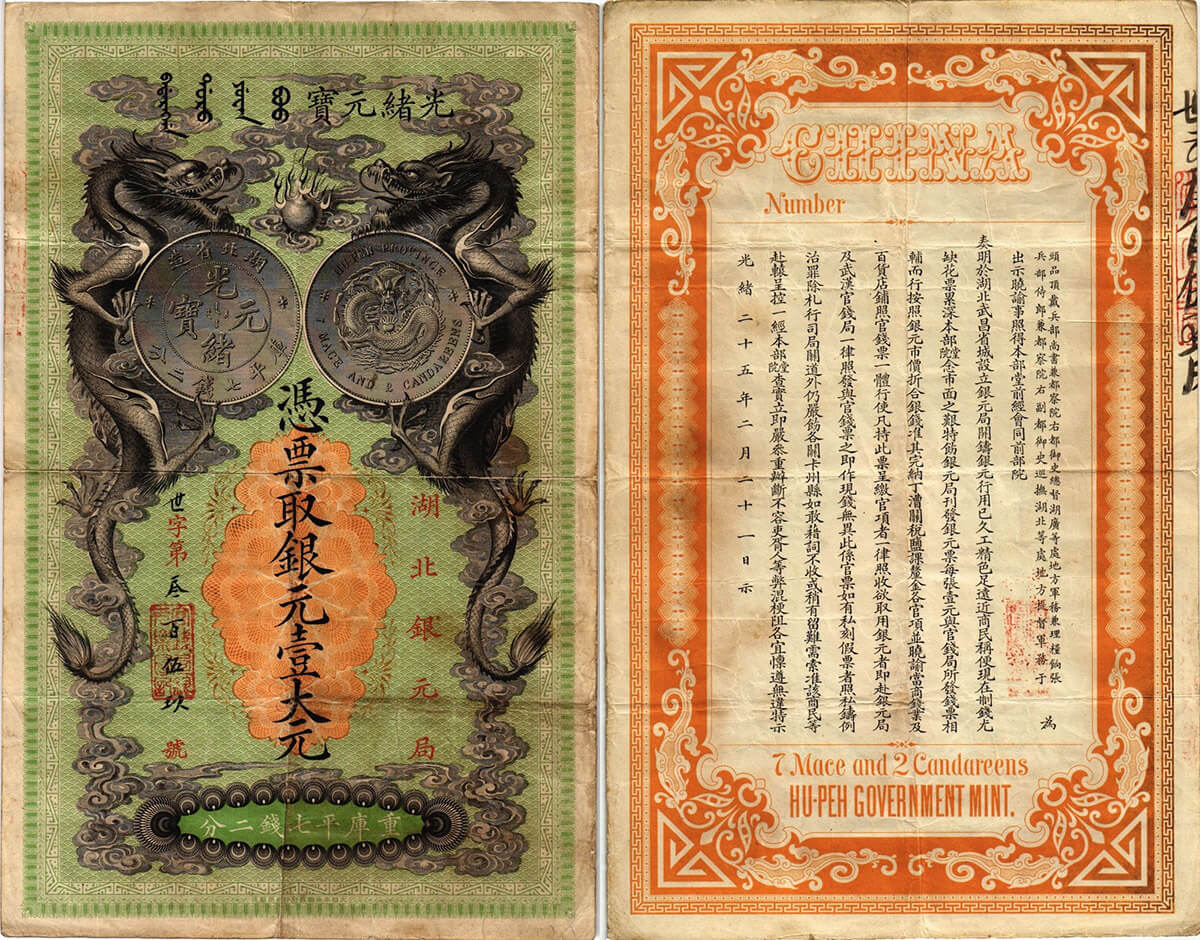 光緒元寶
湖北省造
光緒元寶
庫平七錢二分
HU-PEH PROVINCE
7 MACE AND 2 CANDAREENS
湖北銀元局
憑票取銀元壹大元
世字第叁百伍玖號
重庫平七錢二分
CHINA
Number
頭品頂戴兵部尚書兼都察院右都御史總督湖廣等處地方軍務兼理糧餉張
兵部侍郎兼都察院右副都御史巡撫湖北等處地方提督軍務于
為
出示曉諭事照得本部堂前經會同前部院
奏明於湖北武昌省城設立銀元局開鑄銀元行用已久工精色足遠近商民稱便現在制錢尤
缺花票累深本部堂院念市面之艱特飭銀元局刊發銀元票每張壹元與官錢局所發錢票相
輔而行按照銀元市價折合銀錢准其完納丁漕關稅鹽課釐金各官項並曉諭當商錢業及
百貨店鋪照官錢票一體行使凡持此票呈繳官項者一律照收欲取用銀元者即赴銀元局
及武漢官錢局一律照發與官錢票之即作現錢無異此係官票如有私刻假票者照私鑄例
治罪除札行司局關道外仍嚴飭各關卡州縣如敢藉詞不收或稍有留難需索准該商民等
赴轅呈控一經本部堂院查實立即嚴叅重辦斷不容吏胥人等弊混梗阻各宜懍遵無違特示
光緒二十五年二月二十一日示
7 Mace and 2 Candareens
HU-PEH GOVERNMENT MINT.